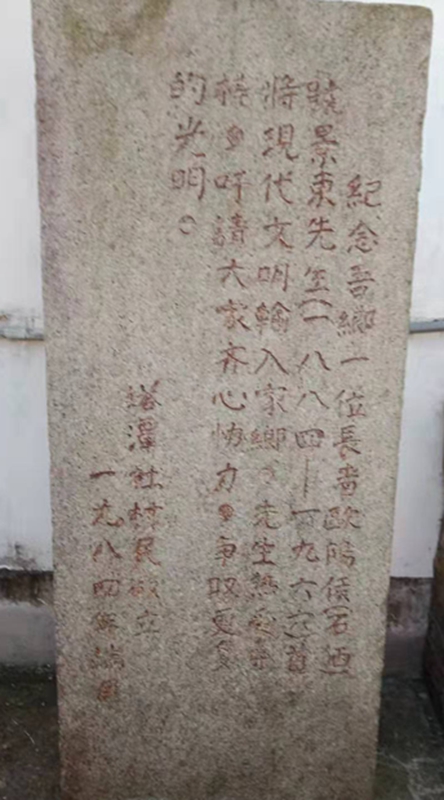 紀念吾鄉一位長者歐陽
景東先生(一八八四—一九六六)首
將現代文明輸入家鄉，先生熱愛桑
梓，吁請大家齊心協力，爭取更多
的光明。
塔潭社村民敬立
一九八四年端月